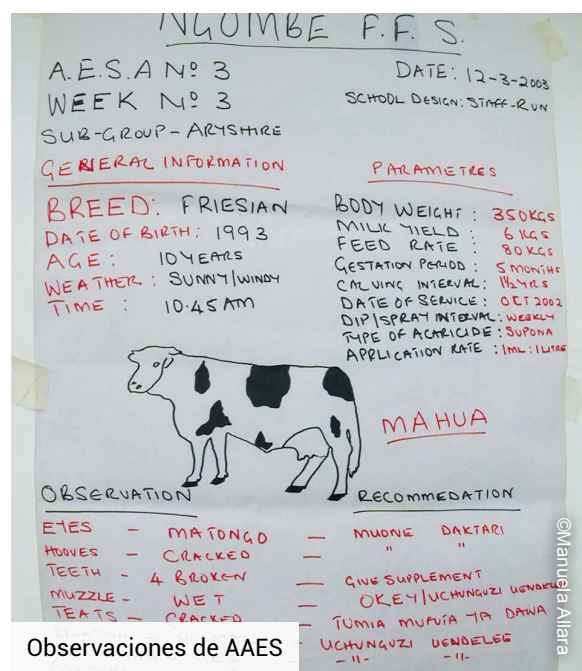 NGOMBE F.F.S.
A.E.S.A Nº 3
DATE: 12-3-2003
WEEK Nº 3
SCHOOL DESIGN: STAFF-RUN
SUB-GROUP-ARYSHIRE
GENERAL INFORMATION
PARAMETRES
BREED: FRIESIAN
DATE OF BIRTH: 1993
AGE: 10 YEARS
WEATHER: SUNNY/WINDY
TIME: 10.45 AM
BODY WEIGHT: 350KGS
MILK YIELD: 6 KGS
FEED RATE: 80KGS
GESTATION PERIOD: 5 MONTHS
CALVING INTERVAL: 1½ YRS
DATE OF SERVICE: OCT 2002
DIP/SPRAY INTERVAL: WEEKLY
TYPE OF ACARICIDE: SUPONA
APPLICATION RATE: 1ML:1LITRE
MAHUA
OBSERVATION
RECOMMEDATION
EYES - MATONGO - MUONE DAKTARI
HOOVES - CRACKED - " "
TEETH - 4 BROKEN - GIVE SUPPLEMENT
MUZZLE - WET - OKEY/UCHUNGUZI UENDELEE
TEATS - CRACKED - TUMIA MUFUTA YA DAWA
UCHUNGUZI UENDELEE
-"- -"-
Observaciones de AAES
©Manuela Allara